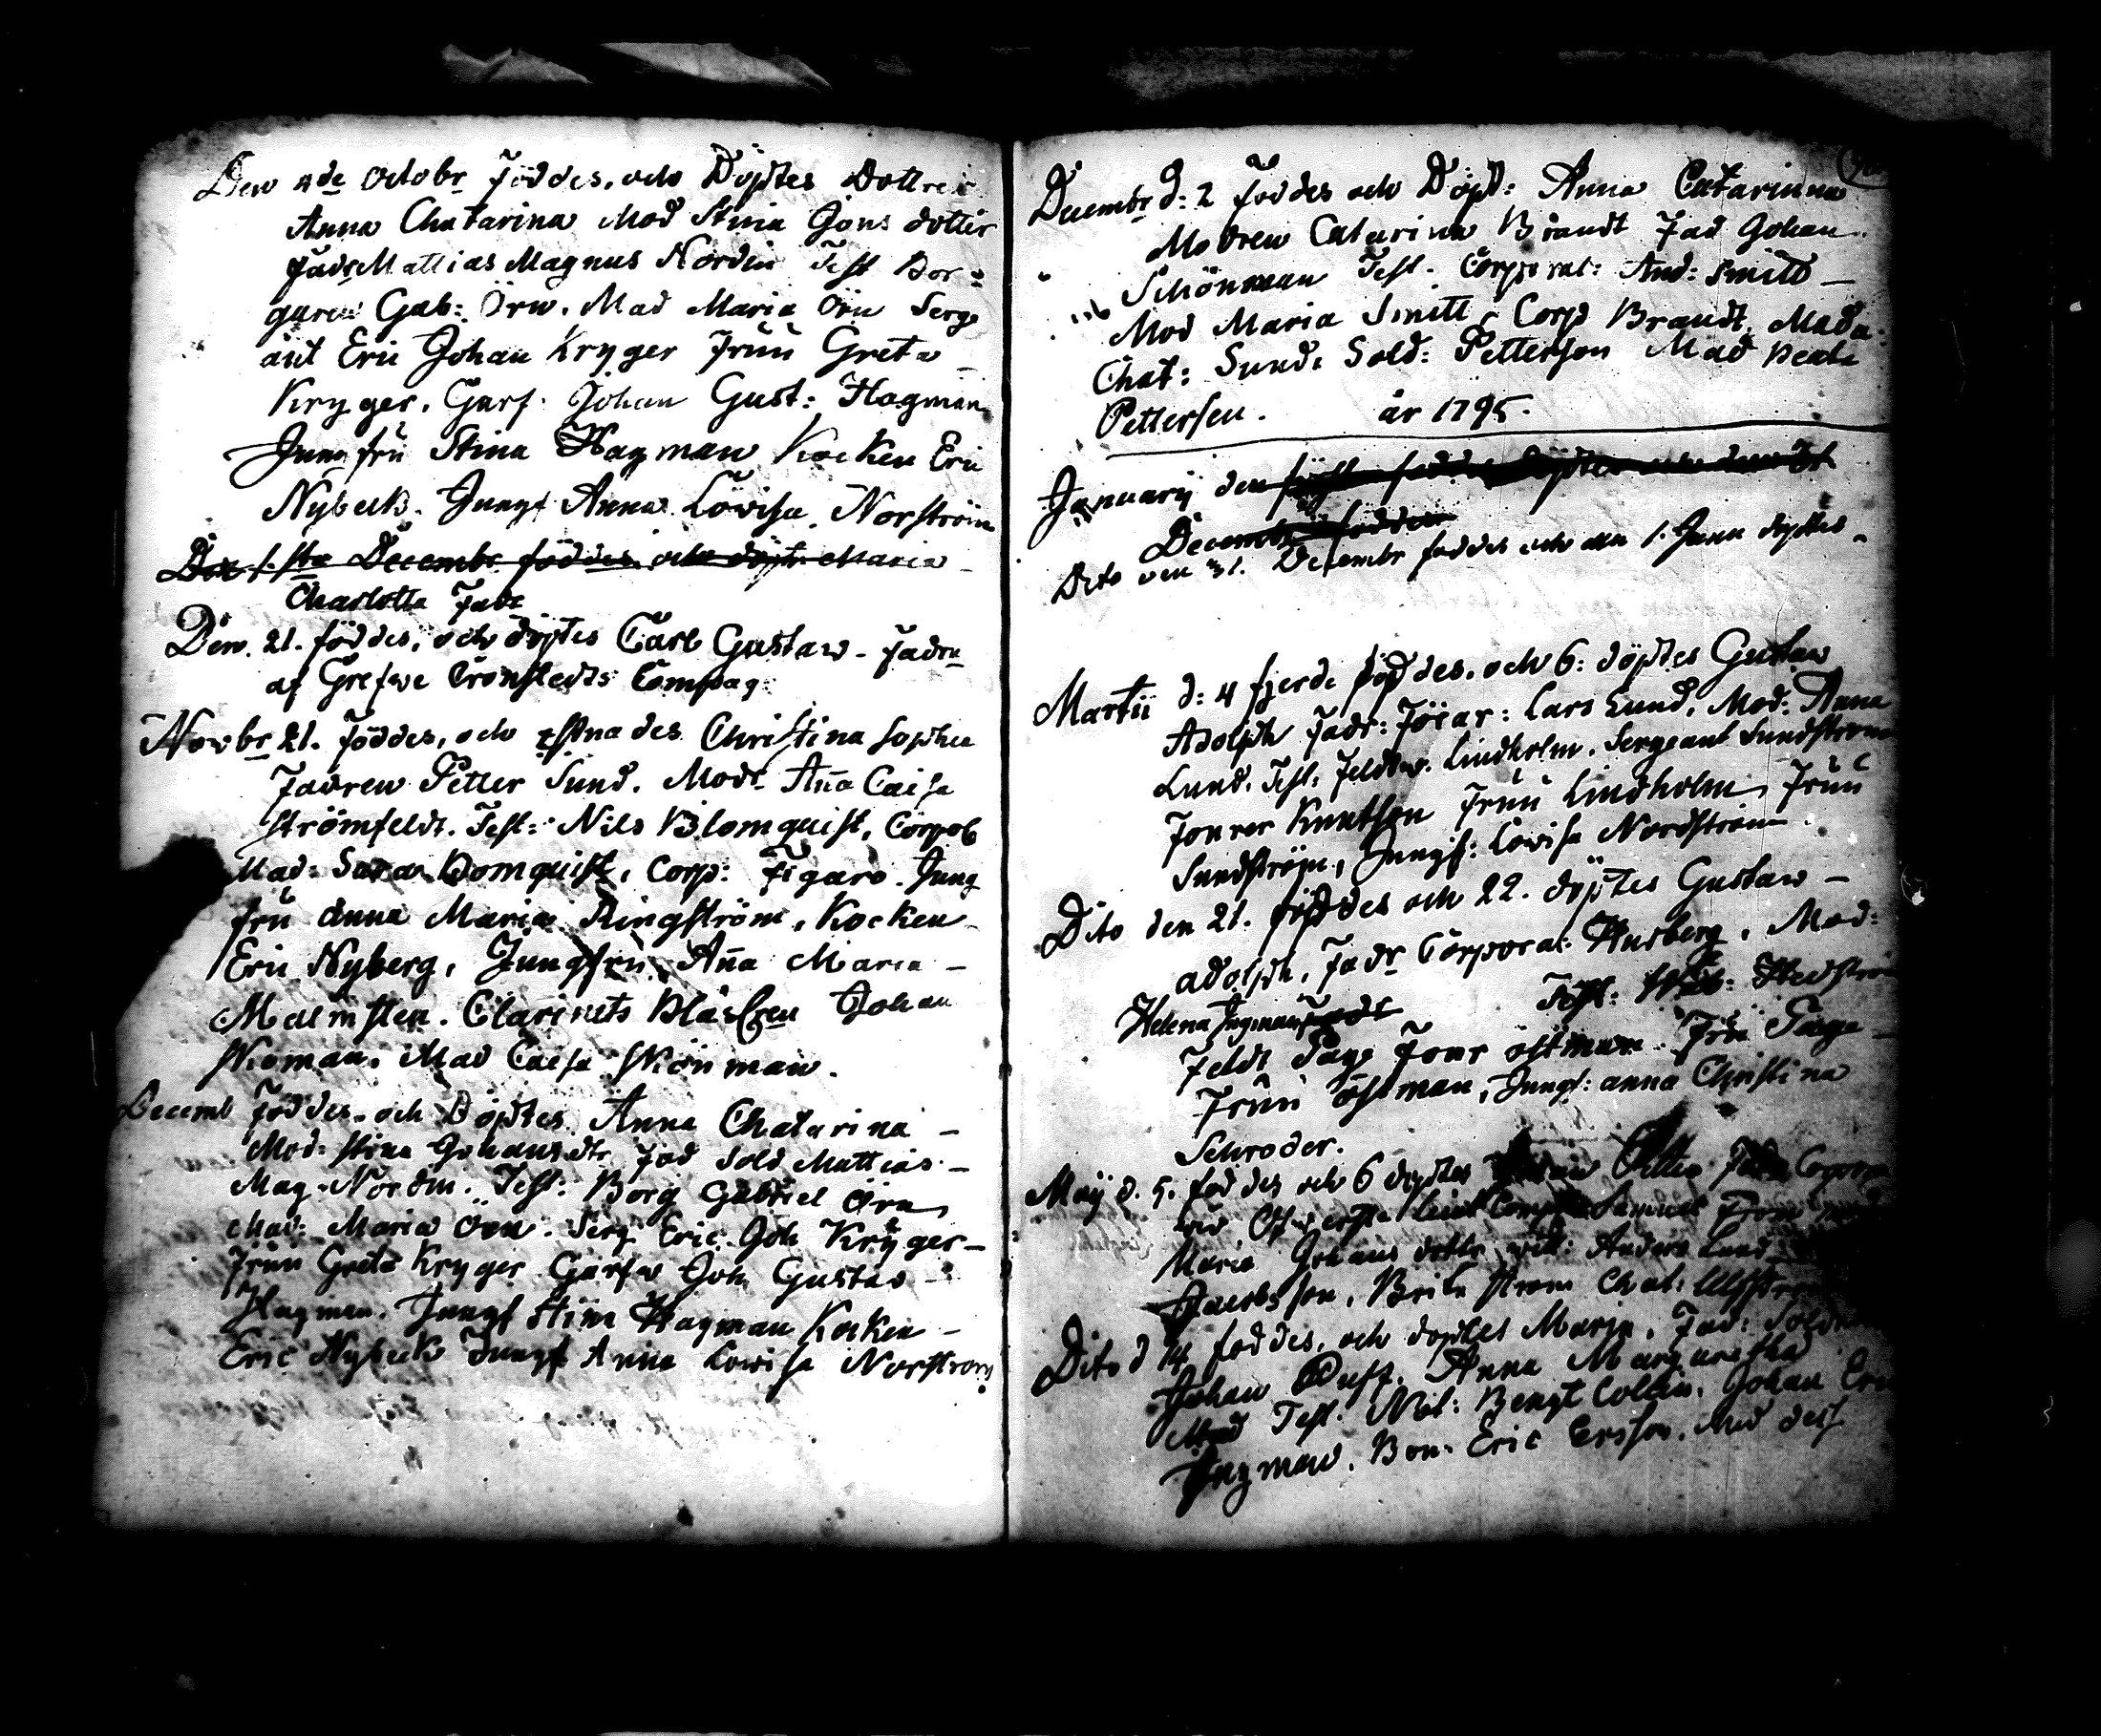 Den 4de Octobr Föddes, och Döptes Dottren
Anna Chatarina Mod Stina Jons dotter
Fadr Mattias Magnus Nordin Test Bor=
garen Gab: Örn. Mad Maria Örn Serge
ant Eric Johan Kryger Fruu Greta
Kryger. Garf. Johan Gust: Hagman
Jungfru Stina Hagman Kocken Eric
Nybeck. Jungf Anna Lowisa Norström
Den 1.sta Decembr föddes och döpt. Maria
Charlotta Fadr
Den. 21. föddes, och döptes Carl Gustaw - Fadrn
af Grefwe Cronstedts Compag:
Novbr 21. Föddes, och Christina Sophia
Fadren Petter Sund. Modr Aña Caisa
Strömfeldt. Test: Nils Blomquist, Corpol
Mad: Sara Blomquist, Corp: Figaro. Jung
fru Anna Maria Ringström, Kocken
Eric Nyberg, Jungfru Aña Maria -
Malmsten. Clarinets Blåsren Johan
Skoman. Mad Caisa Skönman.
Decemb Föddes. och Döptes Anna Chatarina -
Mod: Stina Johansdtr Fad Sold Mattias -
Mag. Nordin. Test: Borg Gabriel Örn,
Mad: Maria Örn. Serg Eric Joh Kryger -
Fruu Greta Kryger Garfw Joh Gustav -
Hagman. Jungf Stina Hagman Kocken -
Eric Nybeck Jungf Anna Lowisa Norstrom
Decembr d: 2 Foddes och Döpt: Anna Catarinna
Modren Catarina Brandt Fad Johan
Schönman Test. Corporal: And: Smitt -
Mod Maria Smitt, Corp Brandt, Mada:
Chat: Sund. Sold: Petterson Mad Beata
Pettersen. år 1795.
January den
Decembr födder
Dito den 31. Decembr foddes och den 1. Janu döptes
Martii d: 4 fjerde föddes. och 6: döptes Gustaw
Adolph Fadr: Förar: Lars Lund, Mod: Anna
Lund. Test: Feldtw. Lindholm. Sergeant Sundstrom
Fourer Knutson Fruu Lindholm, Fruu
Sundström, Jungf: Lowisa Nordström.
Dito den 21. föddes och 22. döptes Gustaw -
Adolph, Fadr Corporal Husberg, Mod:
Helena Ingman Test: Hedström
Feldt Page Four östman Fru Page
Fruu östman, Jungf: Anna Christina
Schroder.
Maÿ d. 5. foddes och 6 döptes Petter
Compa Samuel
Maria Johans dottr witt: Anders Lund
Jacobsson, Brita Strom Chat:
Dito d 14 foddes, och doptes Maria, Fad: Soldat
Johan Ruff. Anna Margaretha
Mad Test. Nil: Bengt Collin. Johan Eric
Ingman. Bon. Eric Ersson. Med dess